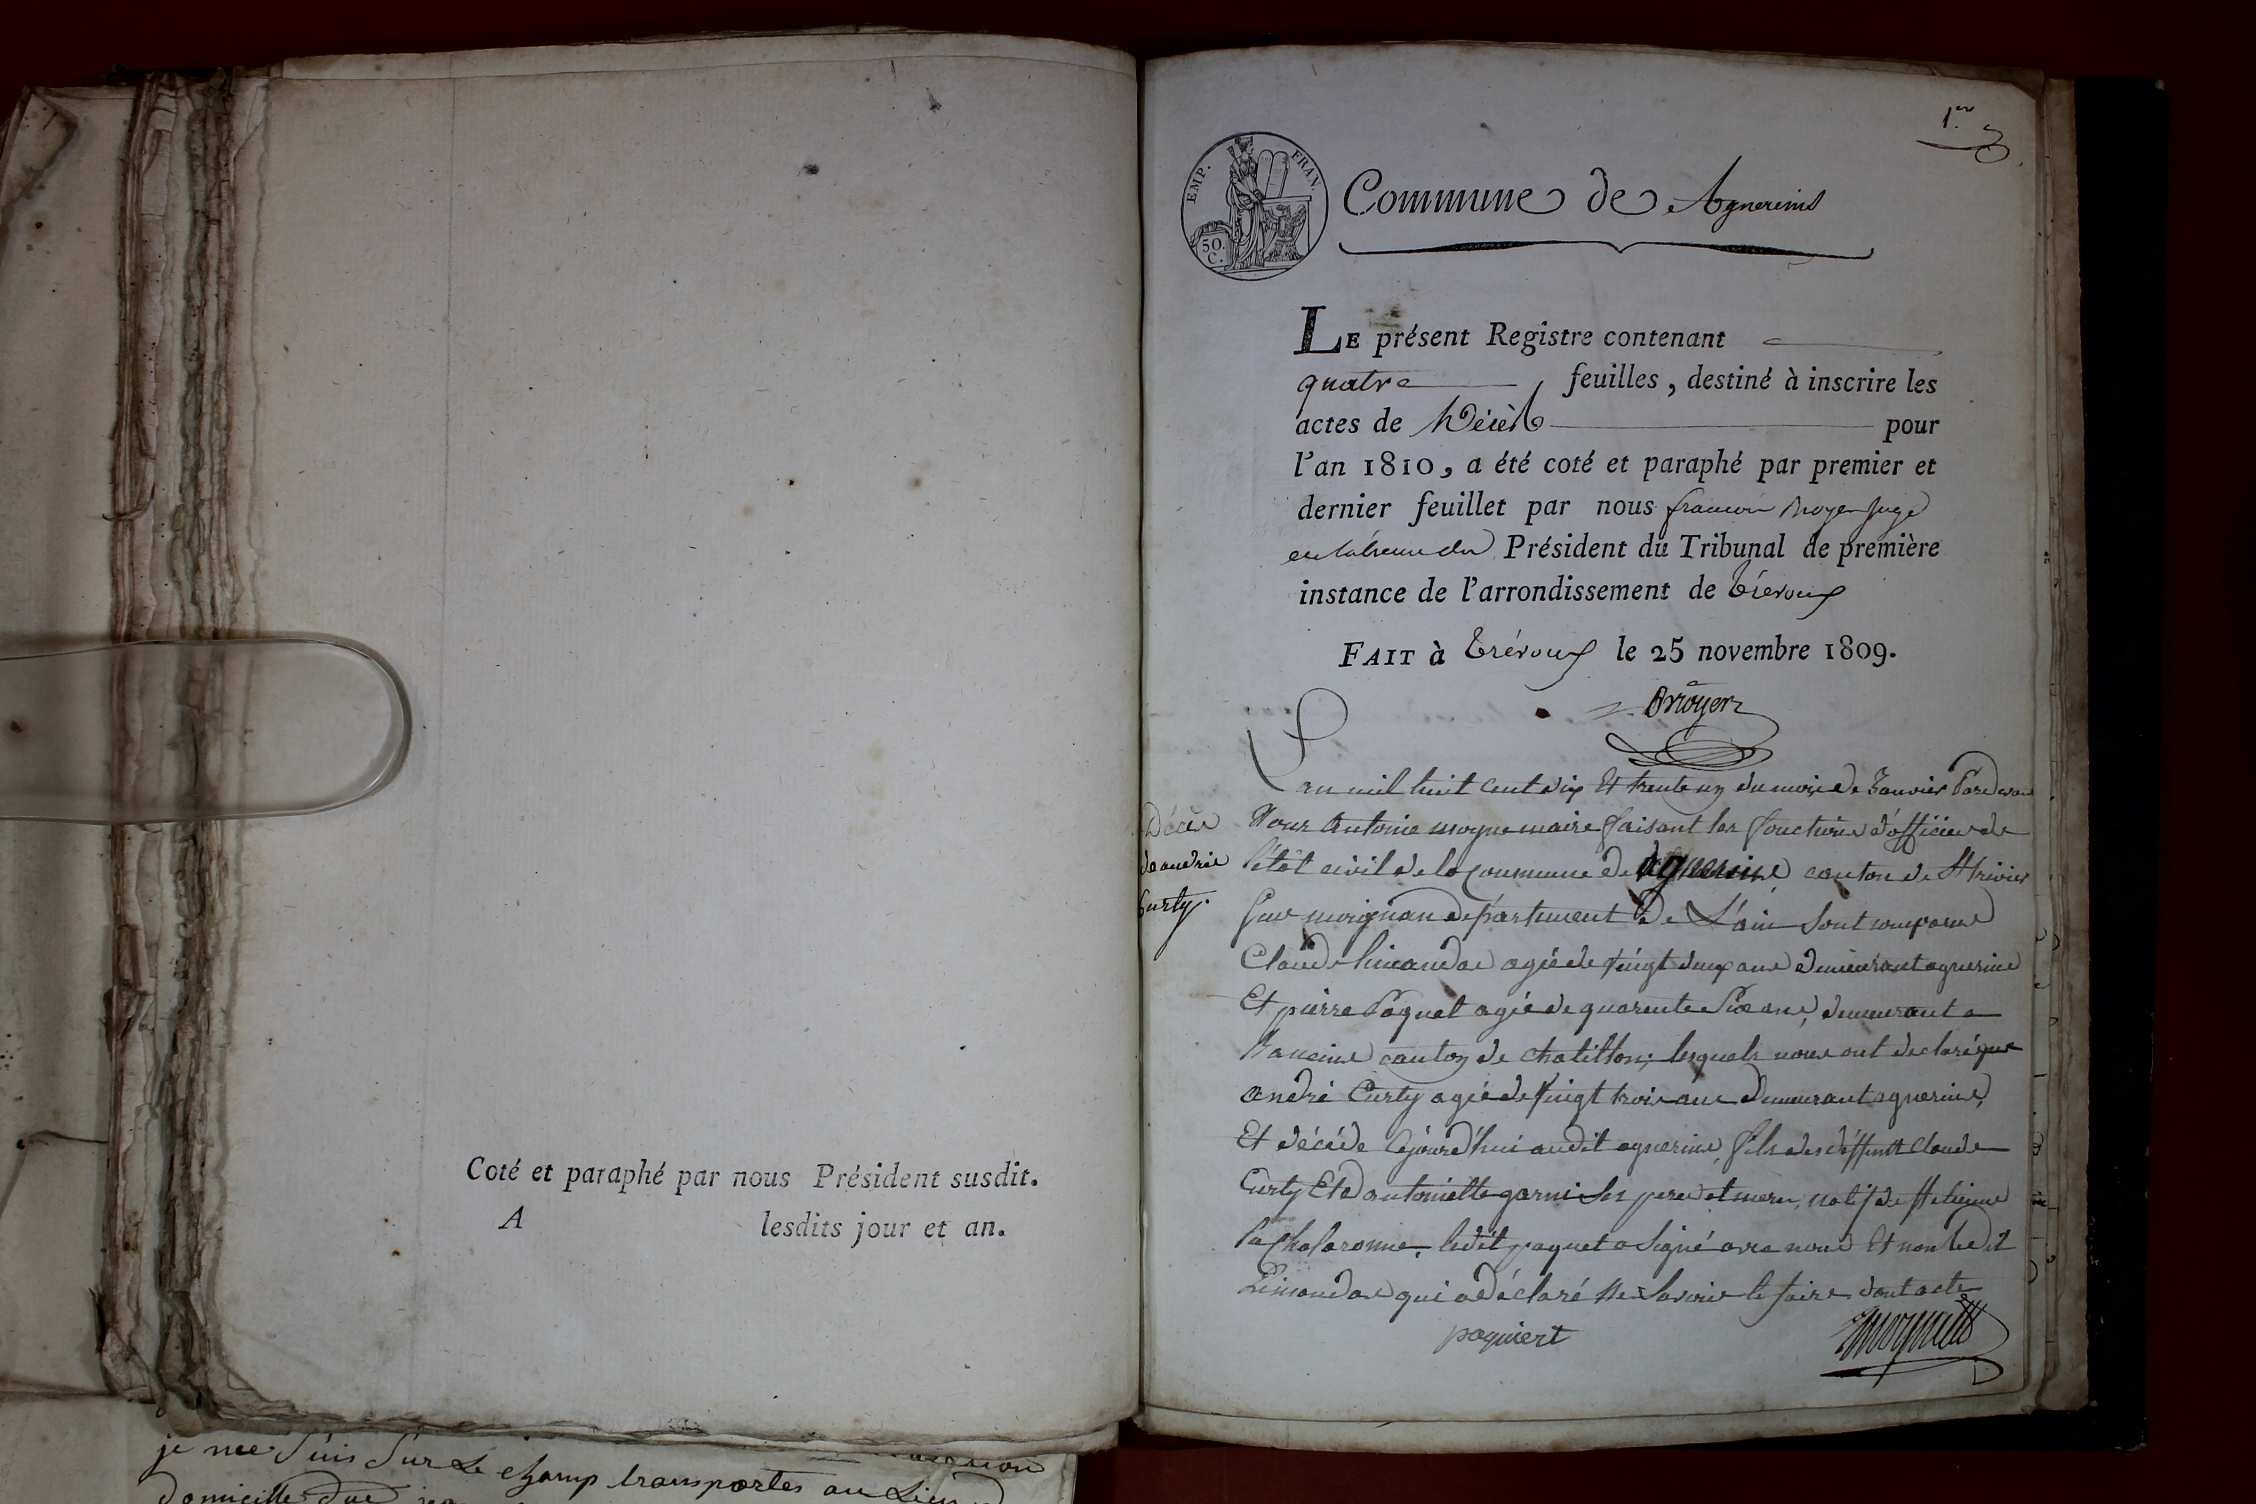 Coté et paraphé par nous Président susdit.
A lesdits jour et an.
je me suis sur le champ transportes au Lieu
domicille due
1.er
EMP. FRAN.
50.
C.
Commune de Agnereins
LE présent Registre contenant
quatre feuilles, destiné à inscrire les
actes de Décès pour
l'an 1810, a été coté et paraphé par premier et
dernier feuillet par nous francois Moyen juge
en l'absence du Président du Tribunal de première
instance de l'arrondissement de trévoux
FAIT à trévoux le 25 novembre 1809.
Moyen
Décès
de andrié
Curty.
L'an mil huit cent dix Et trente un du mois de Janvier Pardevan
Nous Antoine moyne maire faisant les fonctions d'officier de
l'étât civil de la Commune de agnereins canton de St trivier
Sur moignan département De L'ain sont comparus
Claude agié de vingt deux ans demeurant agnerins
Et pierre Paquet agié de quarente Six ans, demeurant a
Baneins canton de chatillon; lesquels nous ont declaré que
André Curty agié de Vingt trois ans Demeurant agnerins,
Et décéde cejourd'hui audit agnerins, fils des deffunt Claude
Curty Et d'antoinette garni ses pere et mere, natif de St Etienne
Sa Chalaronne, ledit paquet a signé avec nous Et non ledit
qui a déclaré ne savoir le faire dont acte
paquiert